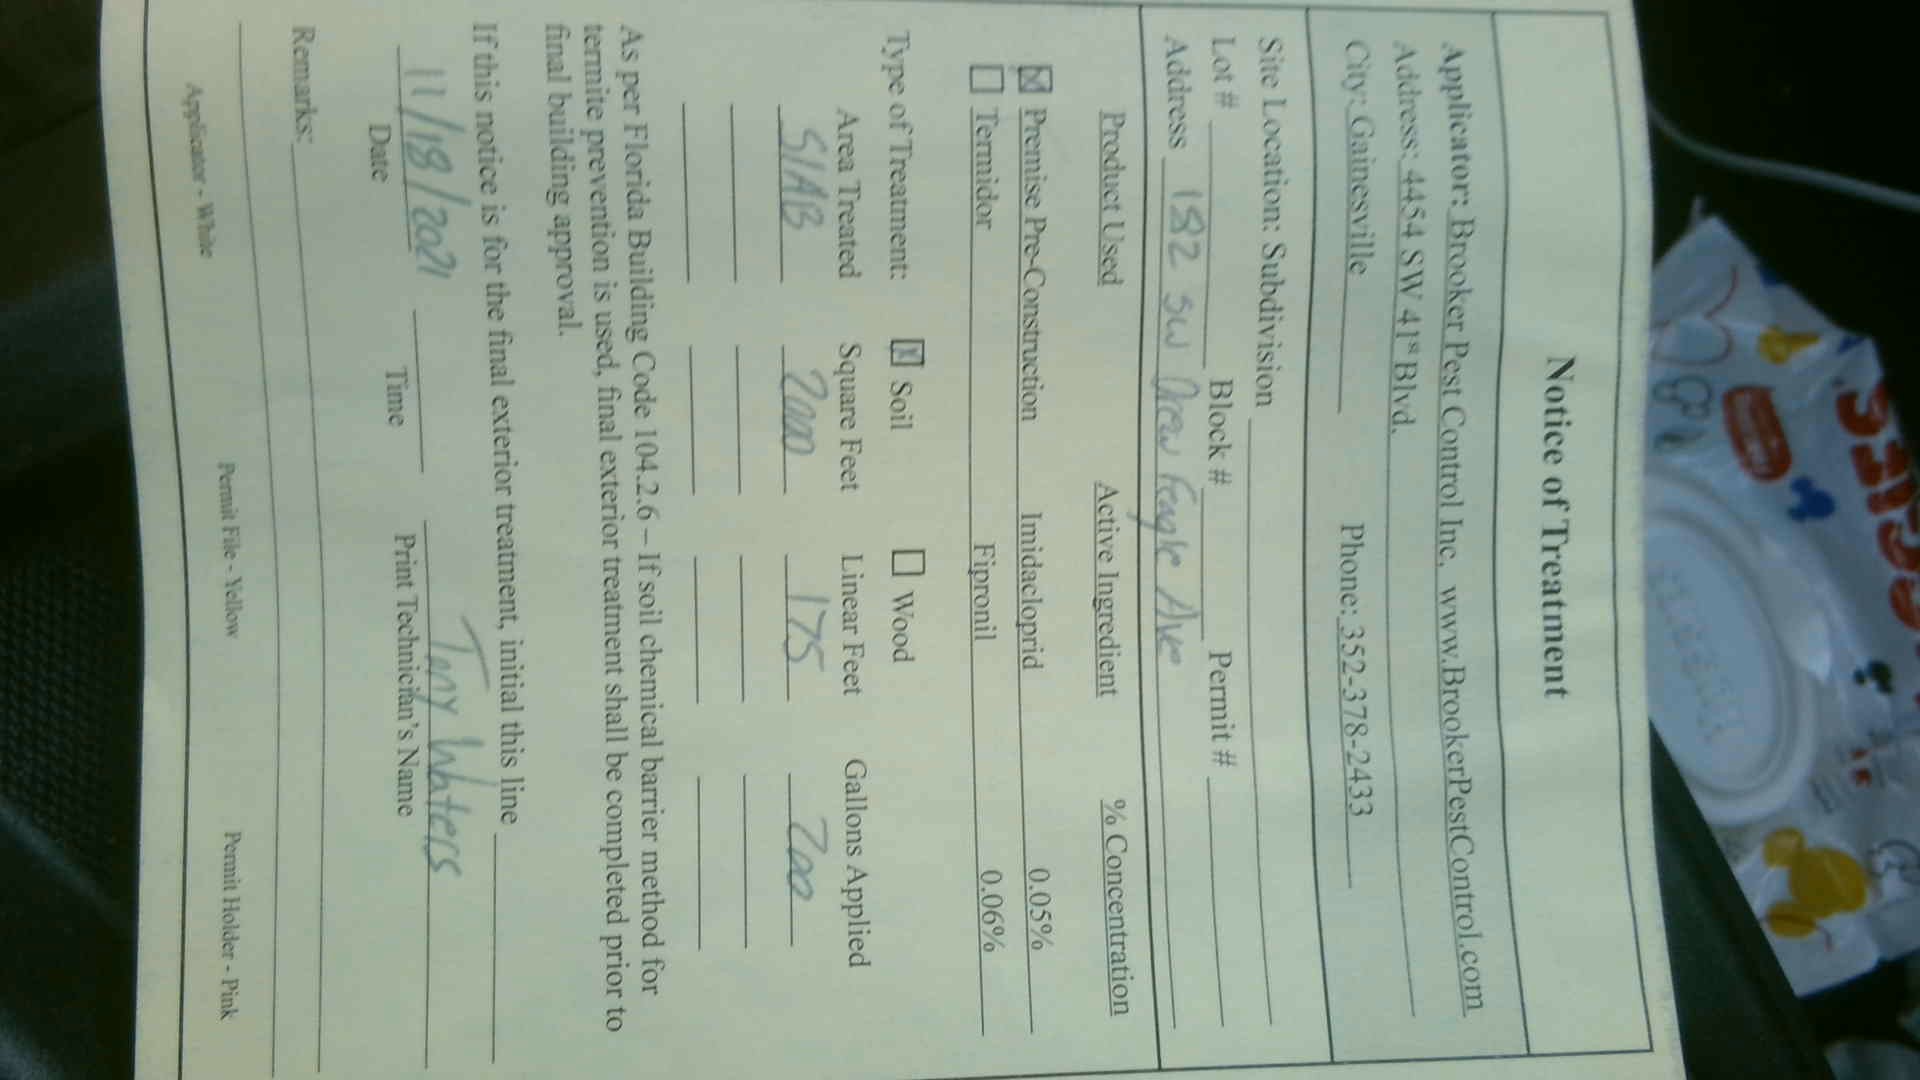 Notice of Treatment
Applicator: Brooker Pest Control Inc. www.BrookerPestControl.com
Address: 4454 SW 41st Blvd.
City: Gainesville Phone: 352-378-2433
Site Location: Subdivision
Lot # Block # Permit #
Address 182 SW Drew Feagle Ave
Product Used Active Ingredient % Concentration
☒ Premise Pre-Construction Imidacloprid 0.05%
☐ Termidor Fipronil 0.06%
Type of Treatment: ☒ Soil ☐ Wood
Area Treated Square Feet Linear Feet Gallons Applied
SlAB 2000 175 200
As per Florida Building Code 104.2.6 – If soil chemical barrier method for
termite prevention is used, final exterior treatment shall be completed prior to
final building approval.
If this notice is for the final exterior treatment, initial this line
11/18/2021 Tony Waters
Date Time Print Technician's Name
Remarks:
Applicator - White Permit File - Yellow Permit Holder - Pink